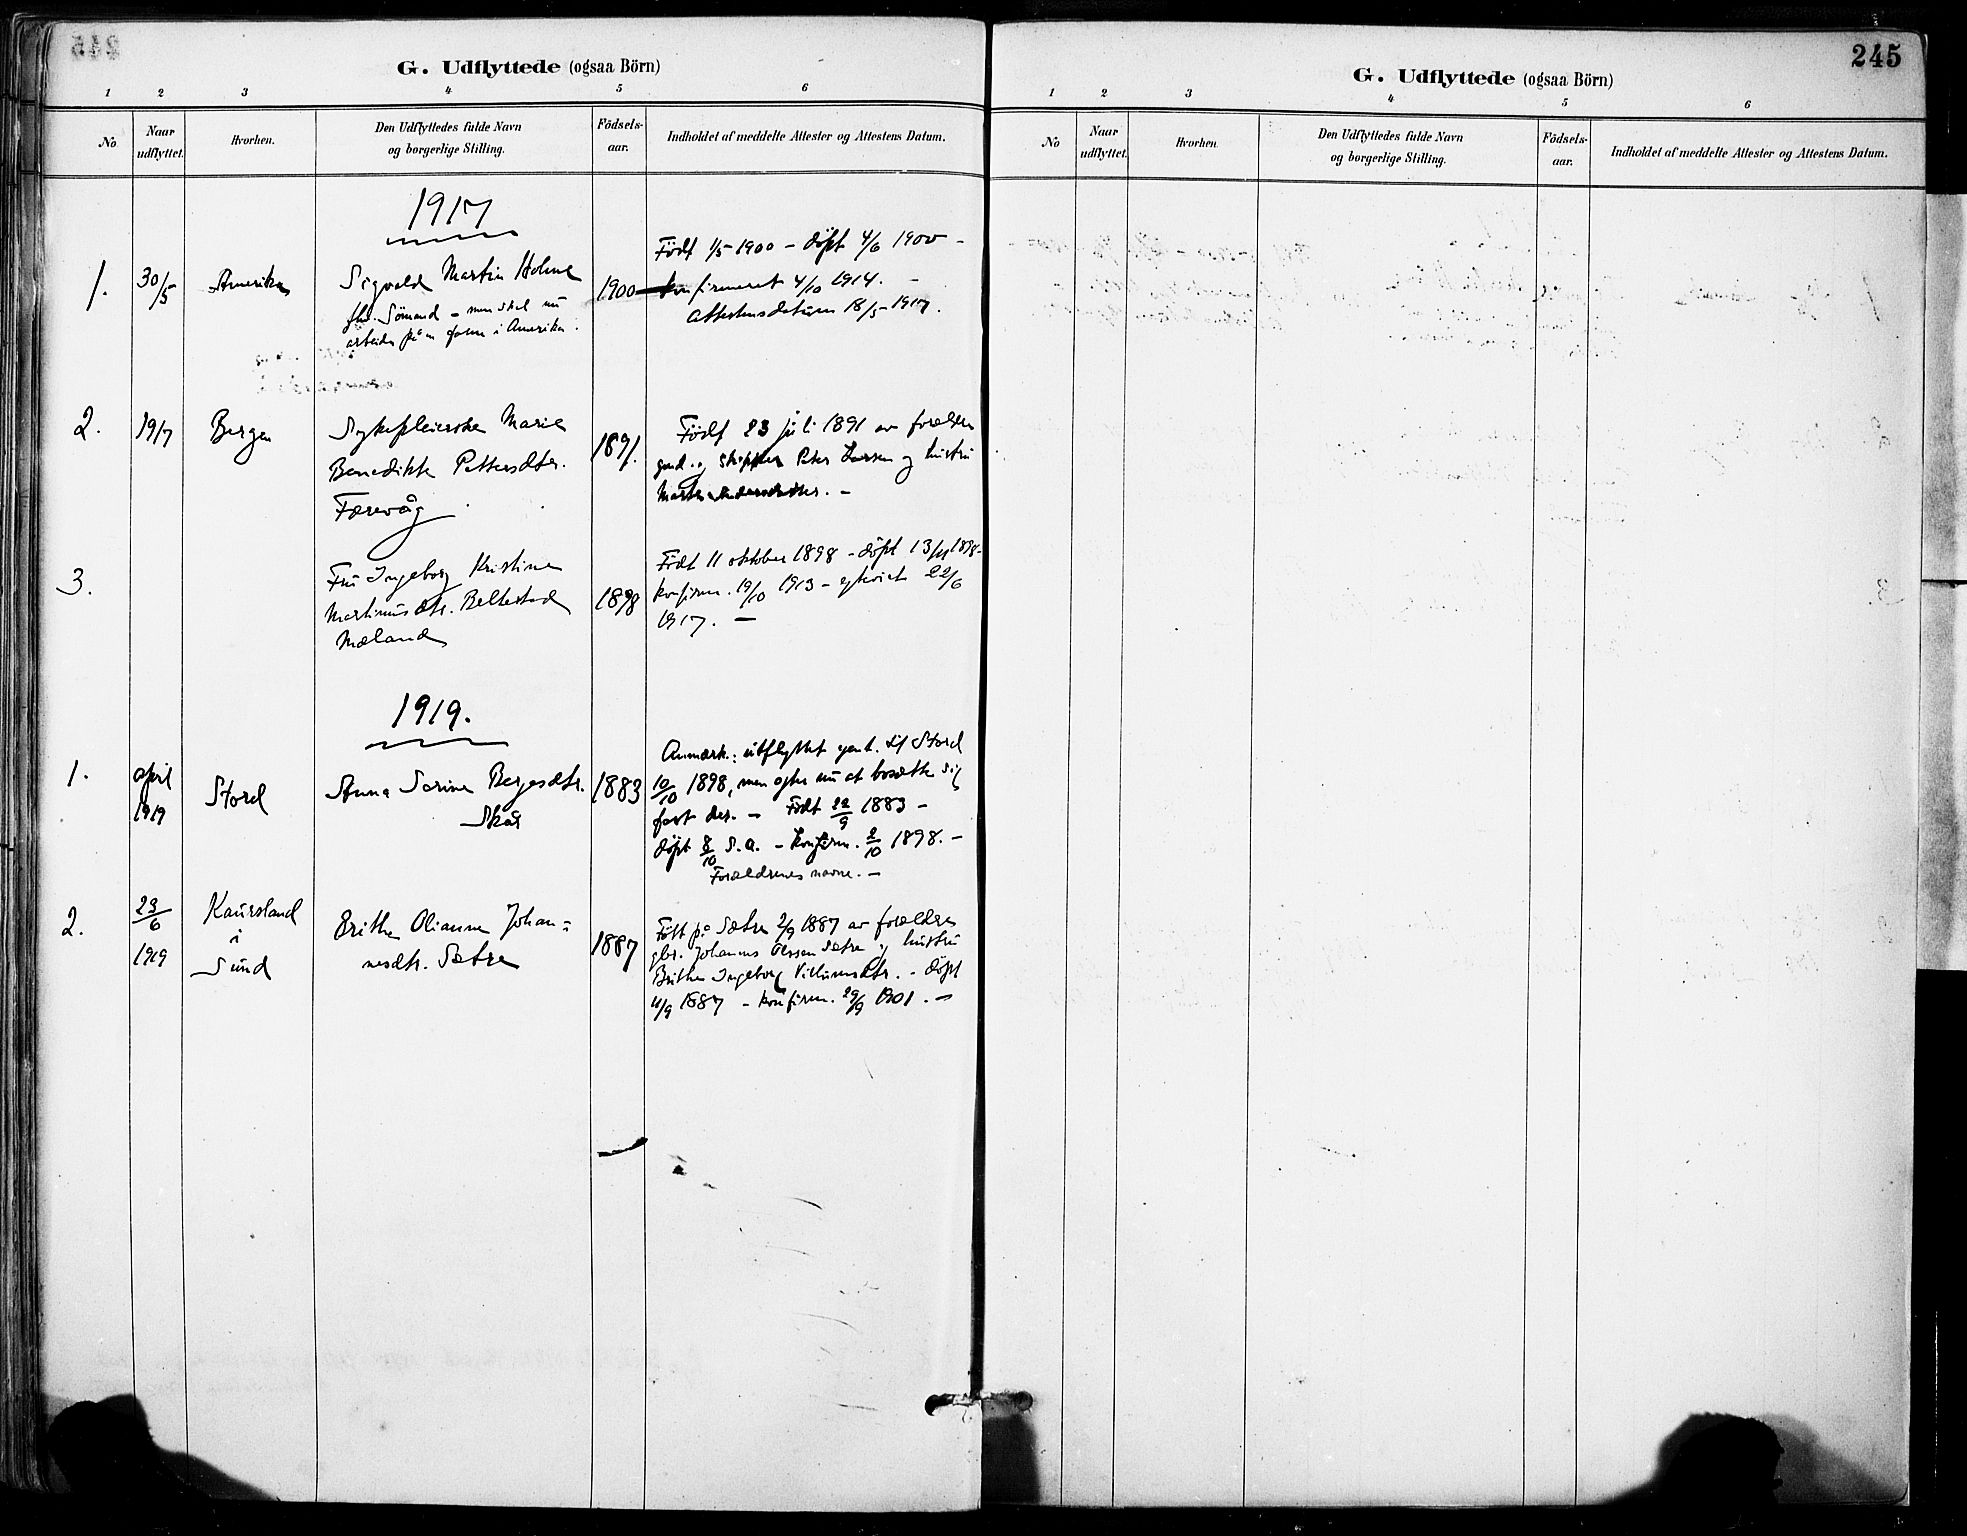 G. Udflyttede (ogsaa Börn)
1 2 3 4 5 6
No Naar udflyttet. Hvorhen. Den Udflyttedes fulde Navn og borgerlige Stilling. Födsels-aar. Indholdet af meddelte Attester og Attestens Datum.
1917
1. 30/5 Amerika Sigvald Martin Holme 1900
fhv. Sömand - men skal nu
arbeide på en farm i Amerika.
Född 1/5 1900 - döpt 4/6 1900 -
konfirmeret 4/10 1914. -
Attestens datum 18/5 1917.
2. 1917 Bergen Sykepleierske Marie 1891.
Benedikte Pettersdtr.
Færevåg
Född 23 juli 1891 av forældre
gmd. og skipper Peter Larsen og hustru
3. Fru Ingeborg Kristine 1898
Martinusdtr. Beltestad
Mæland
Född 11 oktober 1898 - döpt 13/11 1898 -
konfirm. 19/10 1913 - egteviet 22/6
1917. -
1919.
1. april 1919 Stord Anna Serine Bergesdtr. 1883
Skår
Anmærk.: utflyttet gent. til Stord
10/10 1898, men agter nu at bosætte sig
fast der. - Född 22/9 1883 -
döpt 8/10 s.a. - konfirm. 2/10 1898. -
Forældrenes navne. -
2. 23/6 1919 Kaursland i Sund Brithe Olianna Johan= 1887
nesdtr. Sætre
Född på Sætre 2/9 1887 av forældre
gbr. Johannes Olssen Sætre og hustru
Brithe Ingeborg Villumsdtr. - döpt
11/9 1887 - konfirm. 29/9 1901. -
245
G. Udflyttede (ogsaa Börn)
1 2 3 4 5 6
No Naar udflyttet. Hvorhen. Den Udflyttedes fulde Navn og borgerlige Stilling. Födsels-aar. Indholdet af meddelte Attester og Attestens Datum.